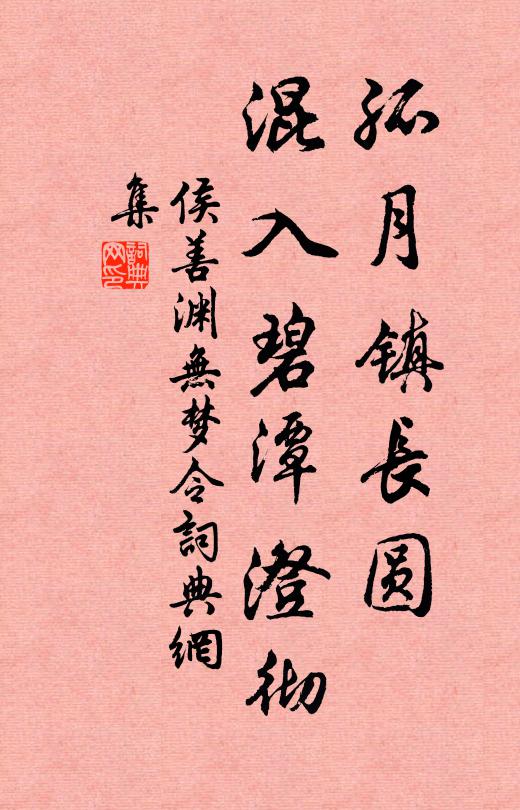 孤月镇長圆
混入碧潭澄彻
侯善渊無梦令詞典網
集
詞典网印